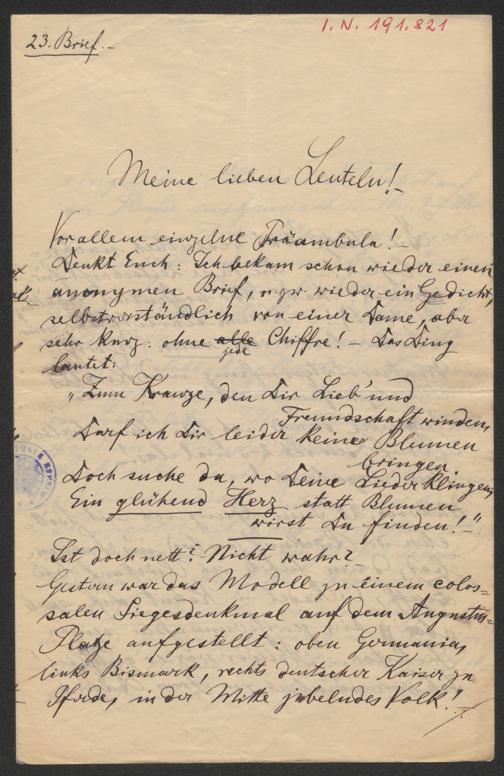 I. N. 191.821
23. Brief.–
Meine lieben Leuteln!–
Vor allem einzelne Präambula!–
Denkt Euch: Ich bekam schon wieder einen
anonymen Brief, u. zw. wieder ein Gedicht,
selbstverständlich von einer Dame, aber
sehr kurz: ohne alle jede Chiffre!– Das Ding
lautet:
"Zum Kranze, den Dir Lieb' und
Freundschaft winden,
Darf ich Dir leider keine Blumen
bringen.
Doch suche da, wo Deine Lieder klingen,
Ein glühend Herz statt Blumen
wirst Du finden!–"
Ist doch nett? Nicht wahr?
Gestern war das Modell zu einem colos-
salen Siegesdenkmal auf dem Augustus-
Platze aufgestellt: oben Germania,
links Bismark, rechts deutscher Kaiser zu
Pferde, in der Mitte jubelndes Volk!